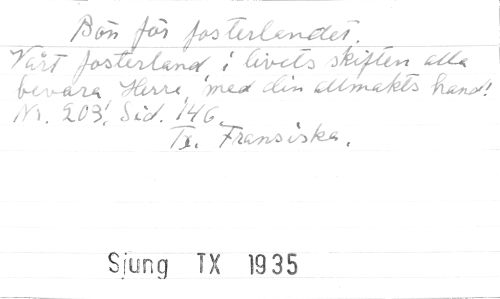 Bön för fosterlandet.
Vårt fosterland, i livets skiften alla
bevara Herre, med din allmakts hand!
Nr. 203, Sid. 146.
Tx. Fransiska.
Sjung TX 1935